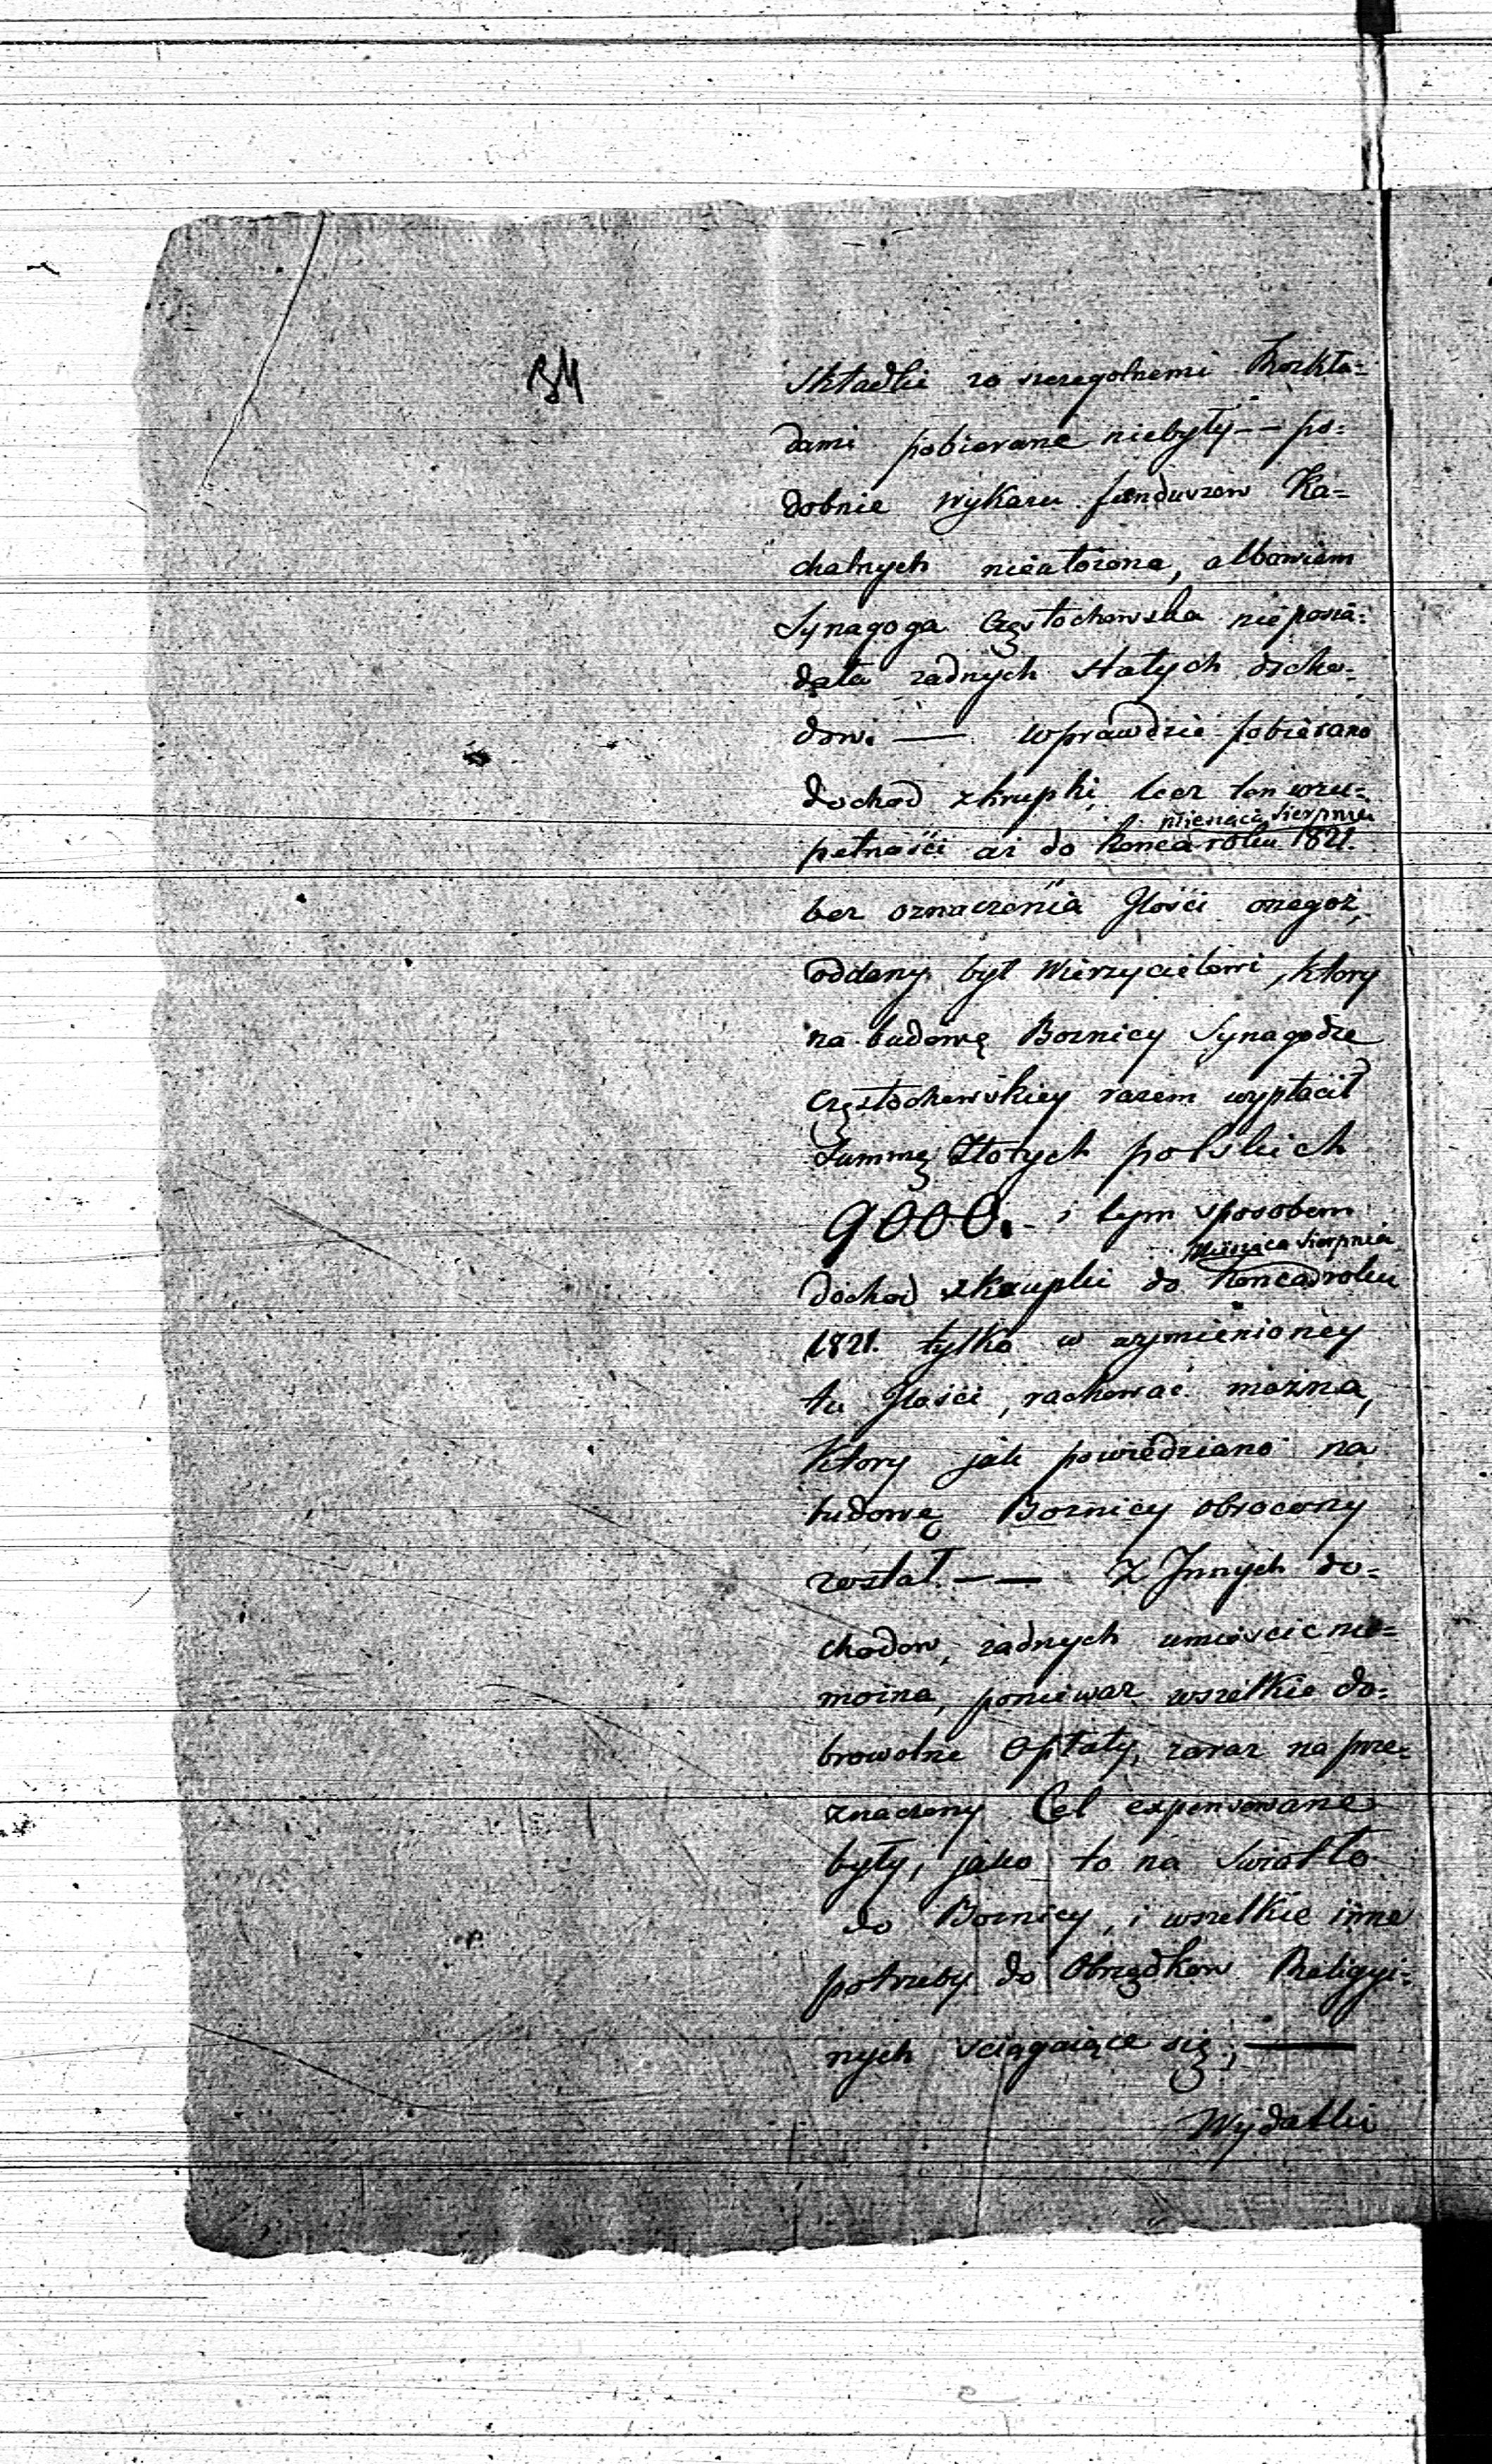 34
Składki zo szczegolnemi Rozkła=
dami pobierane niebyły -- po=
dobnie wykazu funduszow Ka=
chalnych nieułożono, albowiem
Synagoga Częstochowska nieposia=
dała zadnych stałych docho=
dow. — wprawdzie pobierano
dochod zkrupki, lecz ten wzu=
miesiąca Sierpnia
pełności aż do konca roku 1821.
bez oznaczenia Jlości onegoż,
oddany był Wierzycielowi, ktory
na budowę Boznicy Synagodze
Częstochowskiey razem wypłacił
Summę Złotych polskich
9000. i tym sposobem
Miesiąca Sierpnia
dochod zkrupki do konca roku
1821. tylko w wymienioney
tu Jlości, rachować można,
ktory jak powiedziano na
budowę Boznicy obrocony
został. -- Z Jnnych do=
chodow, zadnych umieścic nie=
można, poniewaz wszelkie do=
browolne Opłaty, zaraz na prze=
znaczony Cel expensowane
były, jako to na Swiatło
do Boznicy, i wszelkie inne
potrzeby do Obrządkow Religyi=
nych sciągaiące się; —
Wydatki